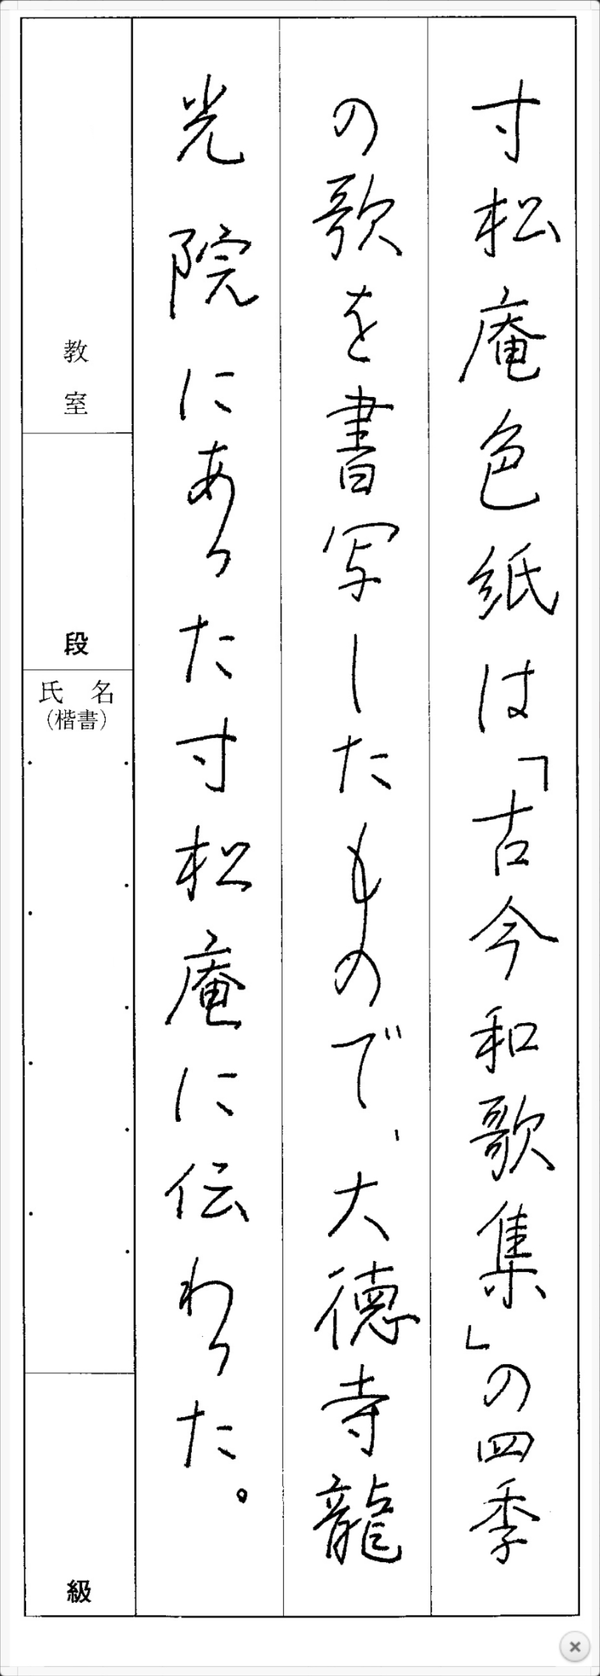 寸松庵色紙は「古今和歌集」の四季
の歌を書写したもので、大徳寺龍
光院にあった寸松庵に伝わった。
教室
段
氏名
（楷書）
級